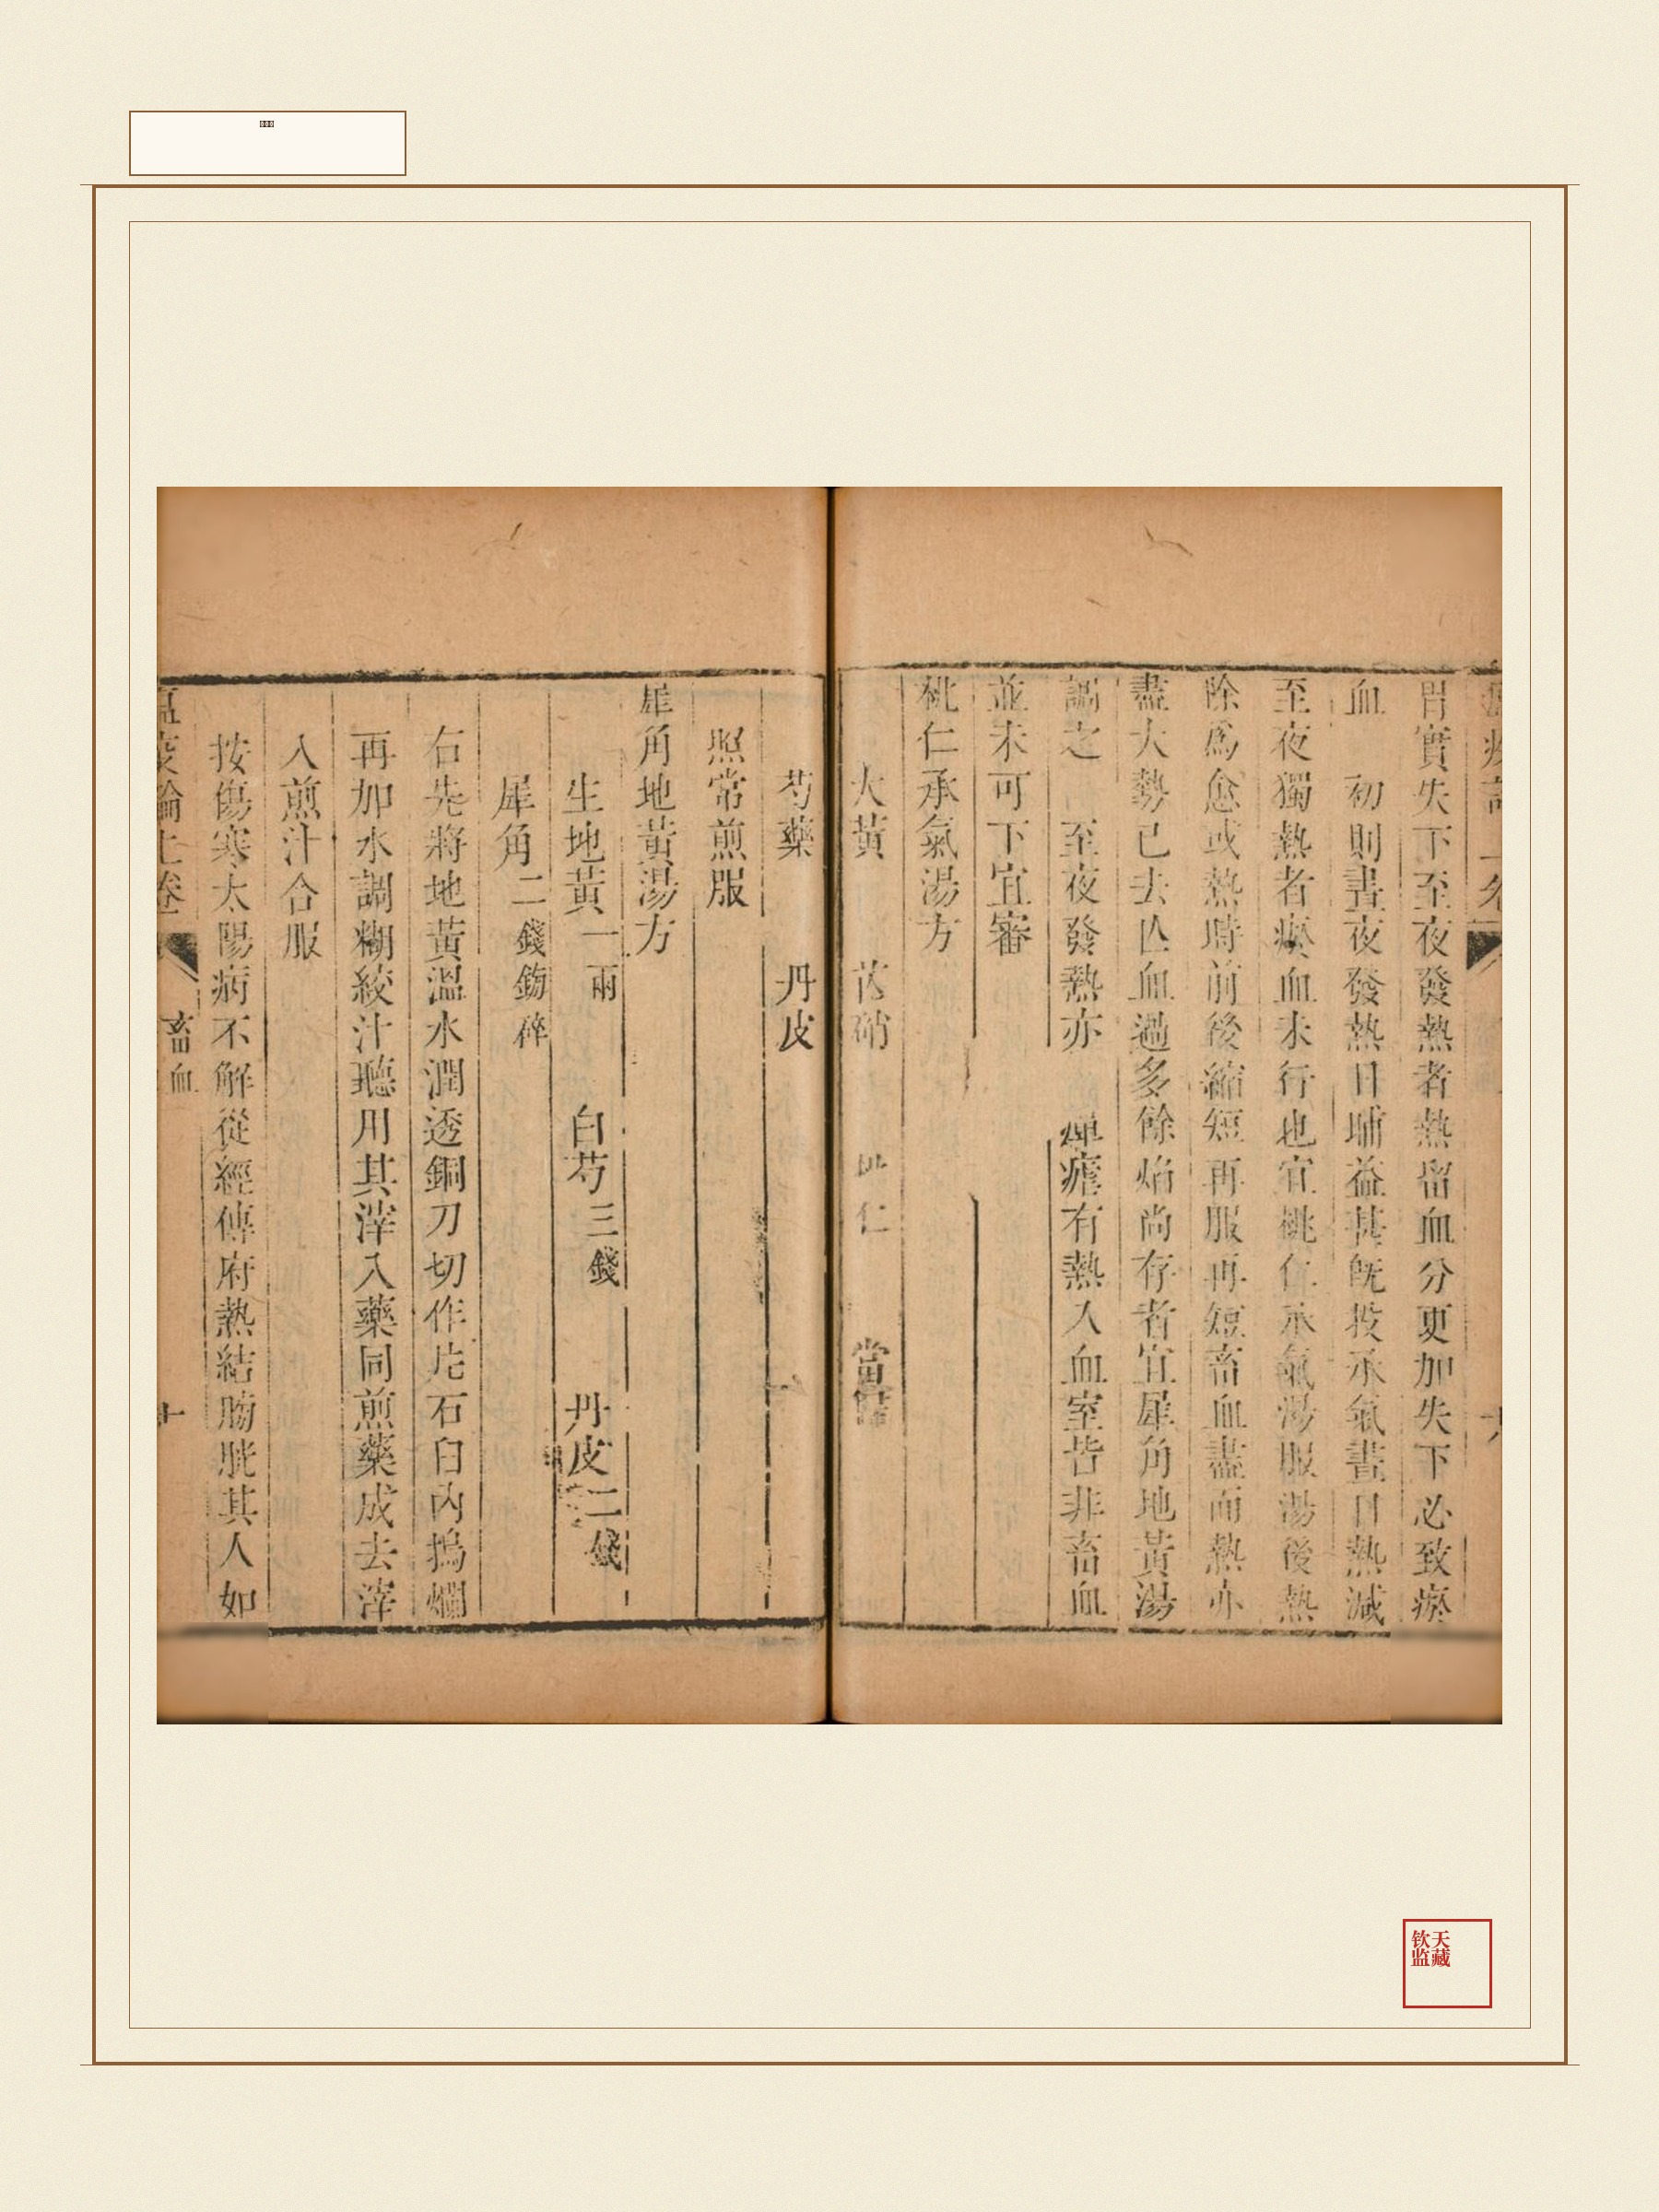 胃實失下至夜發熱者熱留血分更加失下必致瘀
血 初則晝夜發熱日晡益甚既投承氣晝日熱減
至夜獨熱者瘀血未行也宜桃仁承氣湯服湯後熱
除為愈或熱時前後縮短再服再短畜血盡而熱亦
盡大勢已去亡血過多餘焰尚存者宜犀角地黃湯
調之 至夜發熱亦 癉瘧有熱入血室皆非畜血
並未可下宜審
桃仁承氣湯方
大黃 芒硝 仁 當
芍藥 丹皮
照常煎服
犀角地黃湯方
生地黃一兩 白芍三錢 丹皮二錢
犀角二錢鎊碎
右先將地黃溫水潤透銅刀切作片石臼內搗爛
再加水調糊絞汁聽用其滓入藥同煎藥成去滓
入煎汁合服
按傷寒太陽病不解從經傳府熱結膀胱其人如
瘟疫論上卷 畜血 十
天藏
钦监